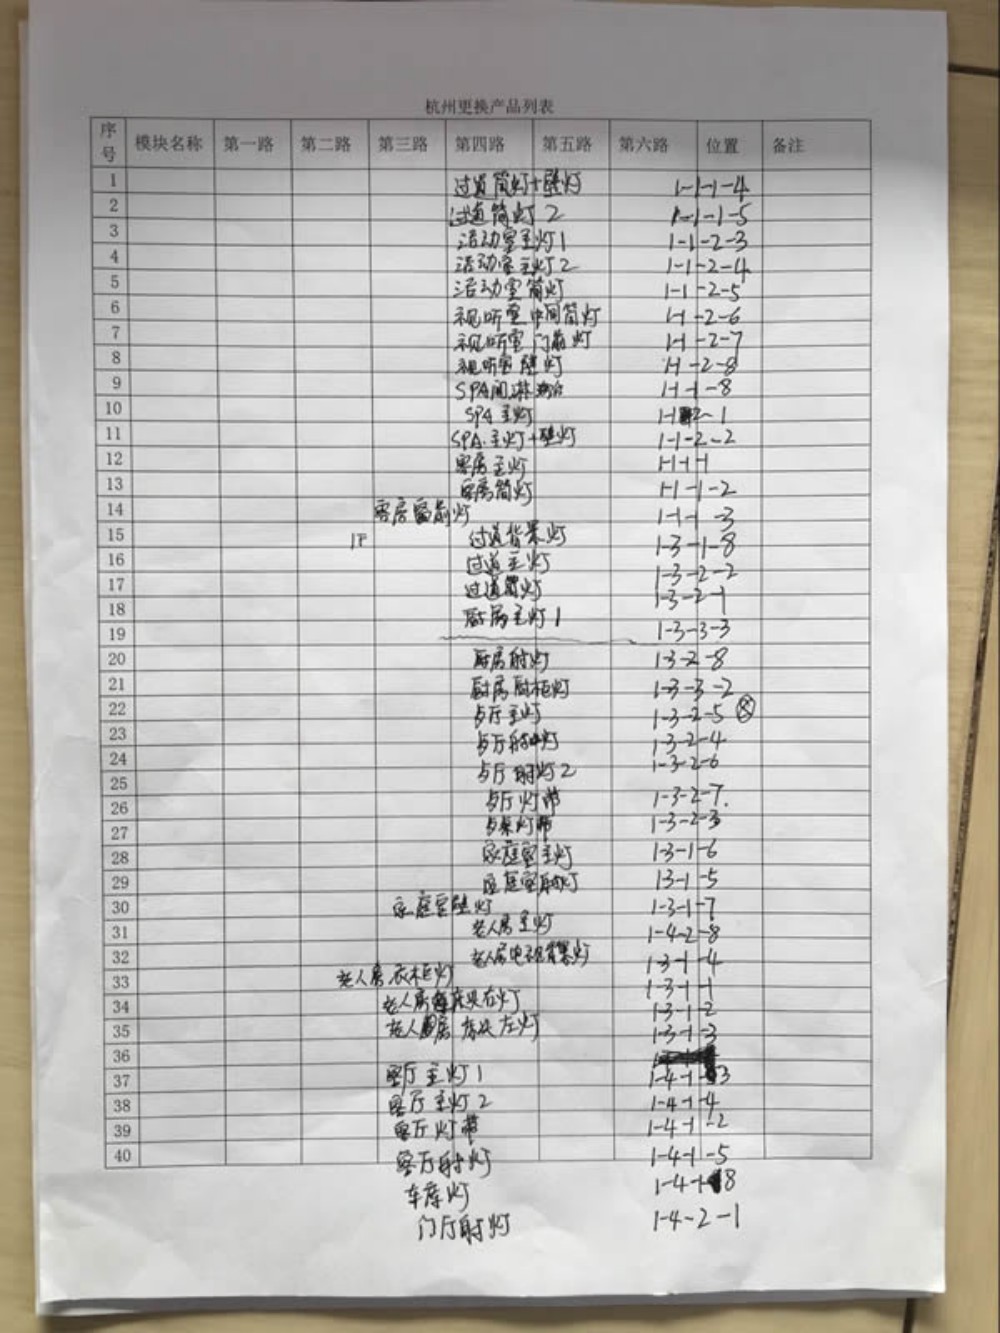 杭州更换产品列表
序号 模块名称 第一路 第二路 第三路 第四路 第五路 第六路 位置 备注
1 过道筒灯+壁灯 1-1-1-4
2 过道筒灯2 1-1-1-5
3 活动室主灯1 1-1-2-3
4 活动室主灯2 1-1-2-4
5 活动室筒灯 1-1-2-5
6 视听室中间筒灯 1-1-2-6
7 视听室门前灯 1-1-2-7
8 视听室壁灯 1-1-2-8
9 SPA间淋浴 1-1-1-8
10 SPA主灯 1-1-2-1
11 SPA.主灯+壁灯 1-1-2-2
12 客房主灯 1-1-1-1
13 客房筒灯 1-1-1-2
14 客房窗前灯 1-1-1-3
15 1F 过道背景灯 1-3-1-8
16 过道主灯 1-3-2-2
17 过道筒灯 1-3-2-1
18 厨房主灯1
19 1-3-3-3
20 厨房射灯 1-3-2-8
21 厨房厨柜灯 1-3-3-2
22 与厅主灯 1-3-2-5
23 与厅射灯 1-3-2-4
24 与厅射灯2 1-3-2-6
25
26 与厅灯带 1-3-2-7.
27 灯带 1-3-2-3
28 家庭室主灯 1-3-1-6
29 家庭室射灯 1-3-1-5
30 家庭室壁灯 1-3-1-7
31 老人房主灯 1-4-2-8
32 老人房电视背景灯 1-3-1-4
33 老人房衣柜灯 1-3-1-1
34 老人房床头右灯 1-3-1-2
35 老人房床头左灯 1-3-1-3
36
37 客厅主灯1 1-4-1-3
38 客厅主灯2 1-4-1-4
39 客厅灯带 1-4-1-2
40 客厅射灯 1-4-1-5
车库灯 1-4-1-8
门厅射灯 1-4-2-1